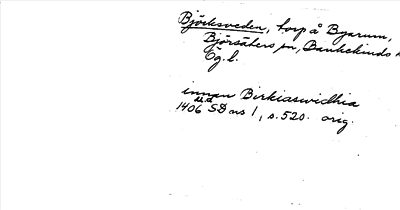 Björksveden, torp å Byarum,
Björsäters sn, Bankekinds
Ög. l.
innan Birkiaswidhia
1406 SD ns 1, s. 520. orig.